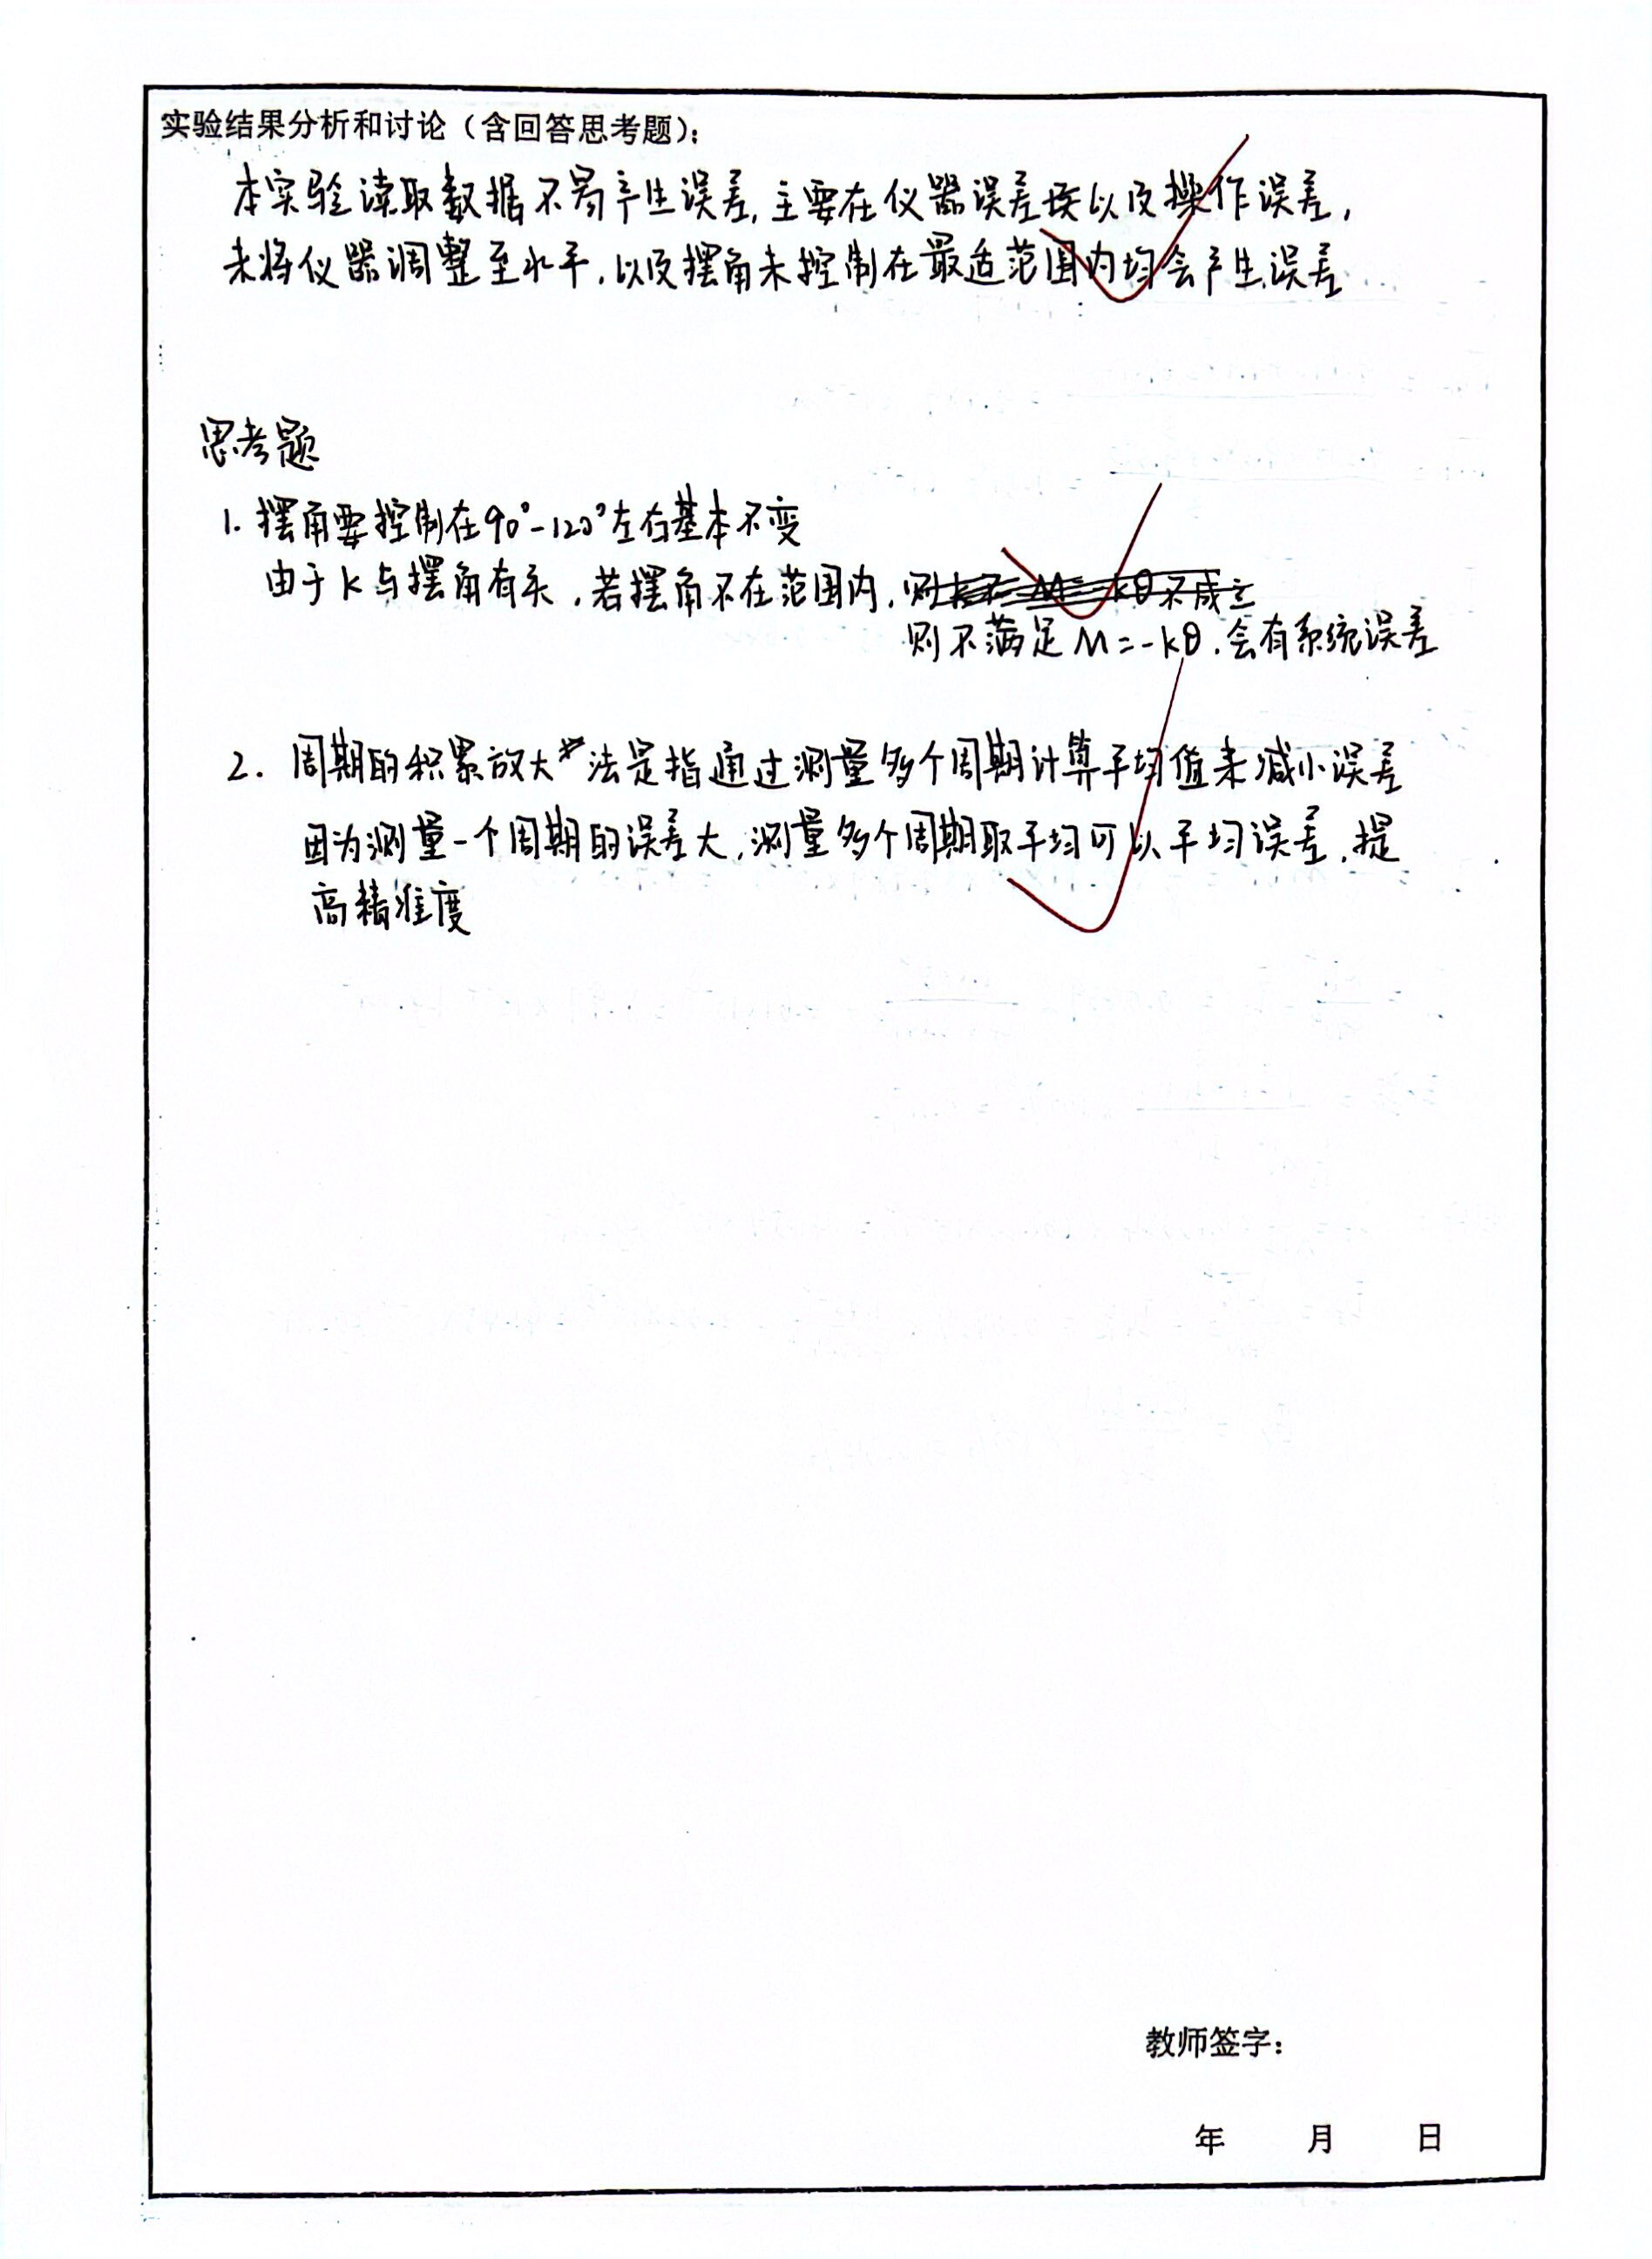 实验结果分析和讨论（含回答思考题）：
本实验读取数据不易产生误差，主要在仪器误差以及操作误差，
未将仪器调整至水平，以及摆角未控制在最适范围内均会产生误差
思考题
1. 摆角要控制在90°-120°左右基本不变
由于k与摆角有关，若摆角不在范围内，则 M=-kθ不成立
则不满足M=-kθ，会有系统误差
2. 周期的积累放大法是指通过测量多个周期计算平均值来减小误差
因为测量一个周期的误差大，测量多个周期取平均可以平均误差，提
高精准度
教师签字：
年 月 日